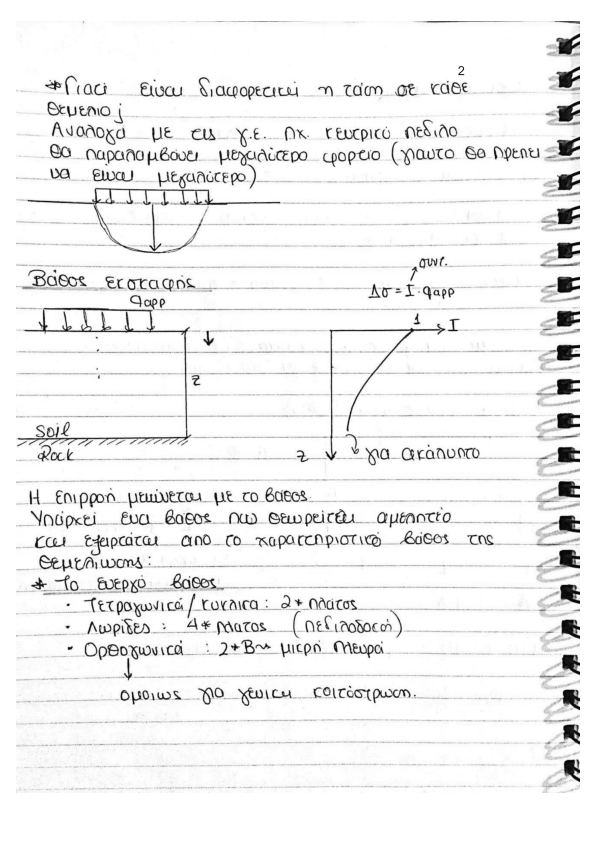 2
*Γιατί είναι διαφορετική η τάση σε κάθε
θεμέλιο;
Αναλογα με τις γ.ε. πχ. κεντρικό πέδιλο
θα παραλαμβάνει μεγαλύτερο φορτίο (γιαυτό θα πρέπει
να είναι μεγαλύτερο)
Βάθος εκσκαφής
συντ.
Δσ = I · qapp
qapp
1
I
z
Soil
Rock
z
για άκαμπτο
Η επιρροή μειώνεται με το βάθος.
Υπάρχει ένα βάθος που θεωρείται αμελητέο
και εξαρτάται από το χαρακτηριστικό βάθος της
θεμελίωσης:
* Το ενεργό βάθος
· Τετραγωνικά/κυκλικά: 2* πλάτος
· Λωρίδες: 4* πλάτος (πεδιλοδοκή)
· Ορθογωνικά: 2*B~ μικρή πλευρά
ομοίως για γενική κοιτόστρωση.